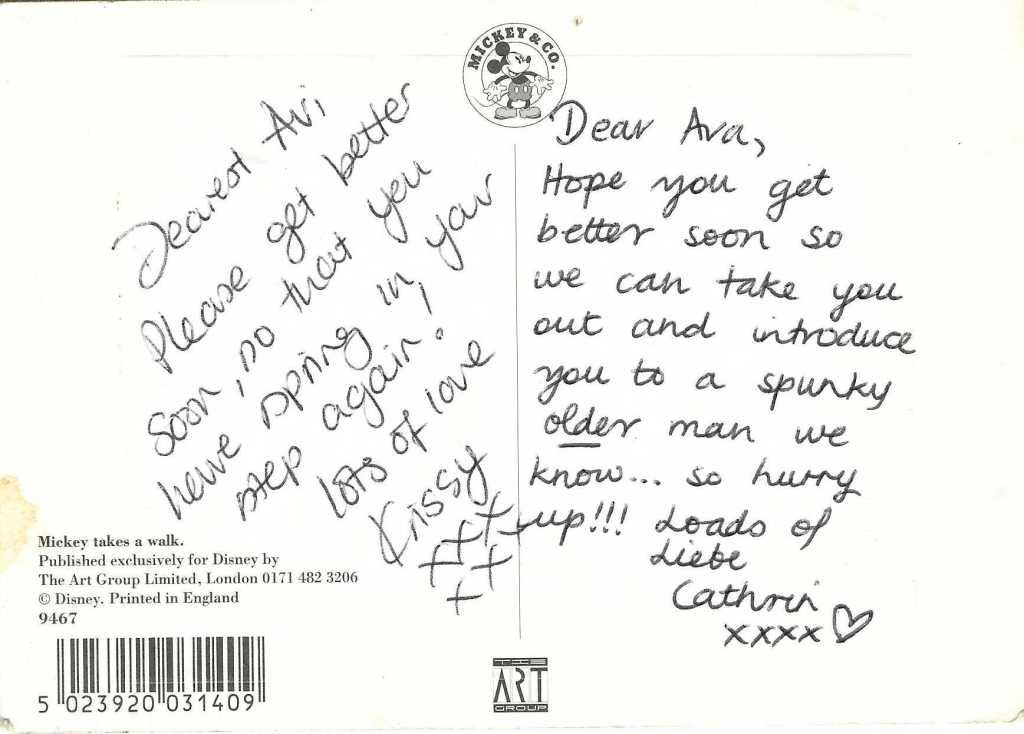 MICKEY & CO.
Dearest Avi,
Please get better
soon, so that you
have spring in your
step again!
lots of love
Krissy
Dear Ava,
Hope you get
better soon so
we can take you
out and introduce
you to a spunky
older man we
know... so hurry
up!!! Loads of
Liebe
Cathrin
xxxx
Mickey takes a walk.
Published exclusively for Disney by
The Art Group Limited, London 0171 482 3206
© Disney. Printed in England
9467
5 023920 031409
THE
ART
GROUP